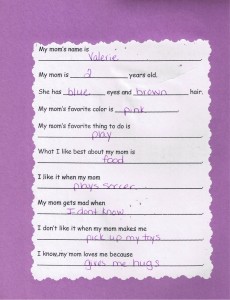 My mom's name is
Valerie
My mom is 2 years old.
She has blue eyes and brown hair.
My mom's favorite color is pink
My mom's favorite thing to do is
play
What I like best about my mom is
food
I like it when my mom
plays soccer
My mom gets mad when
I dont know
I don't like it when my mom makes me
pick up my toys
I know my mom loves me because
gives me hugs